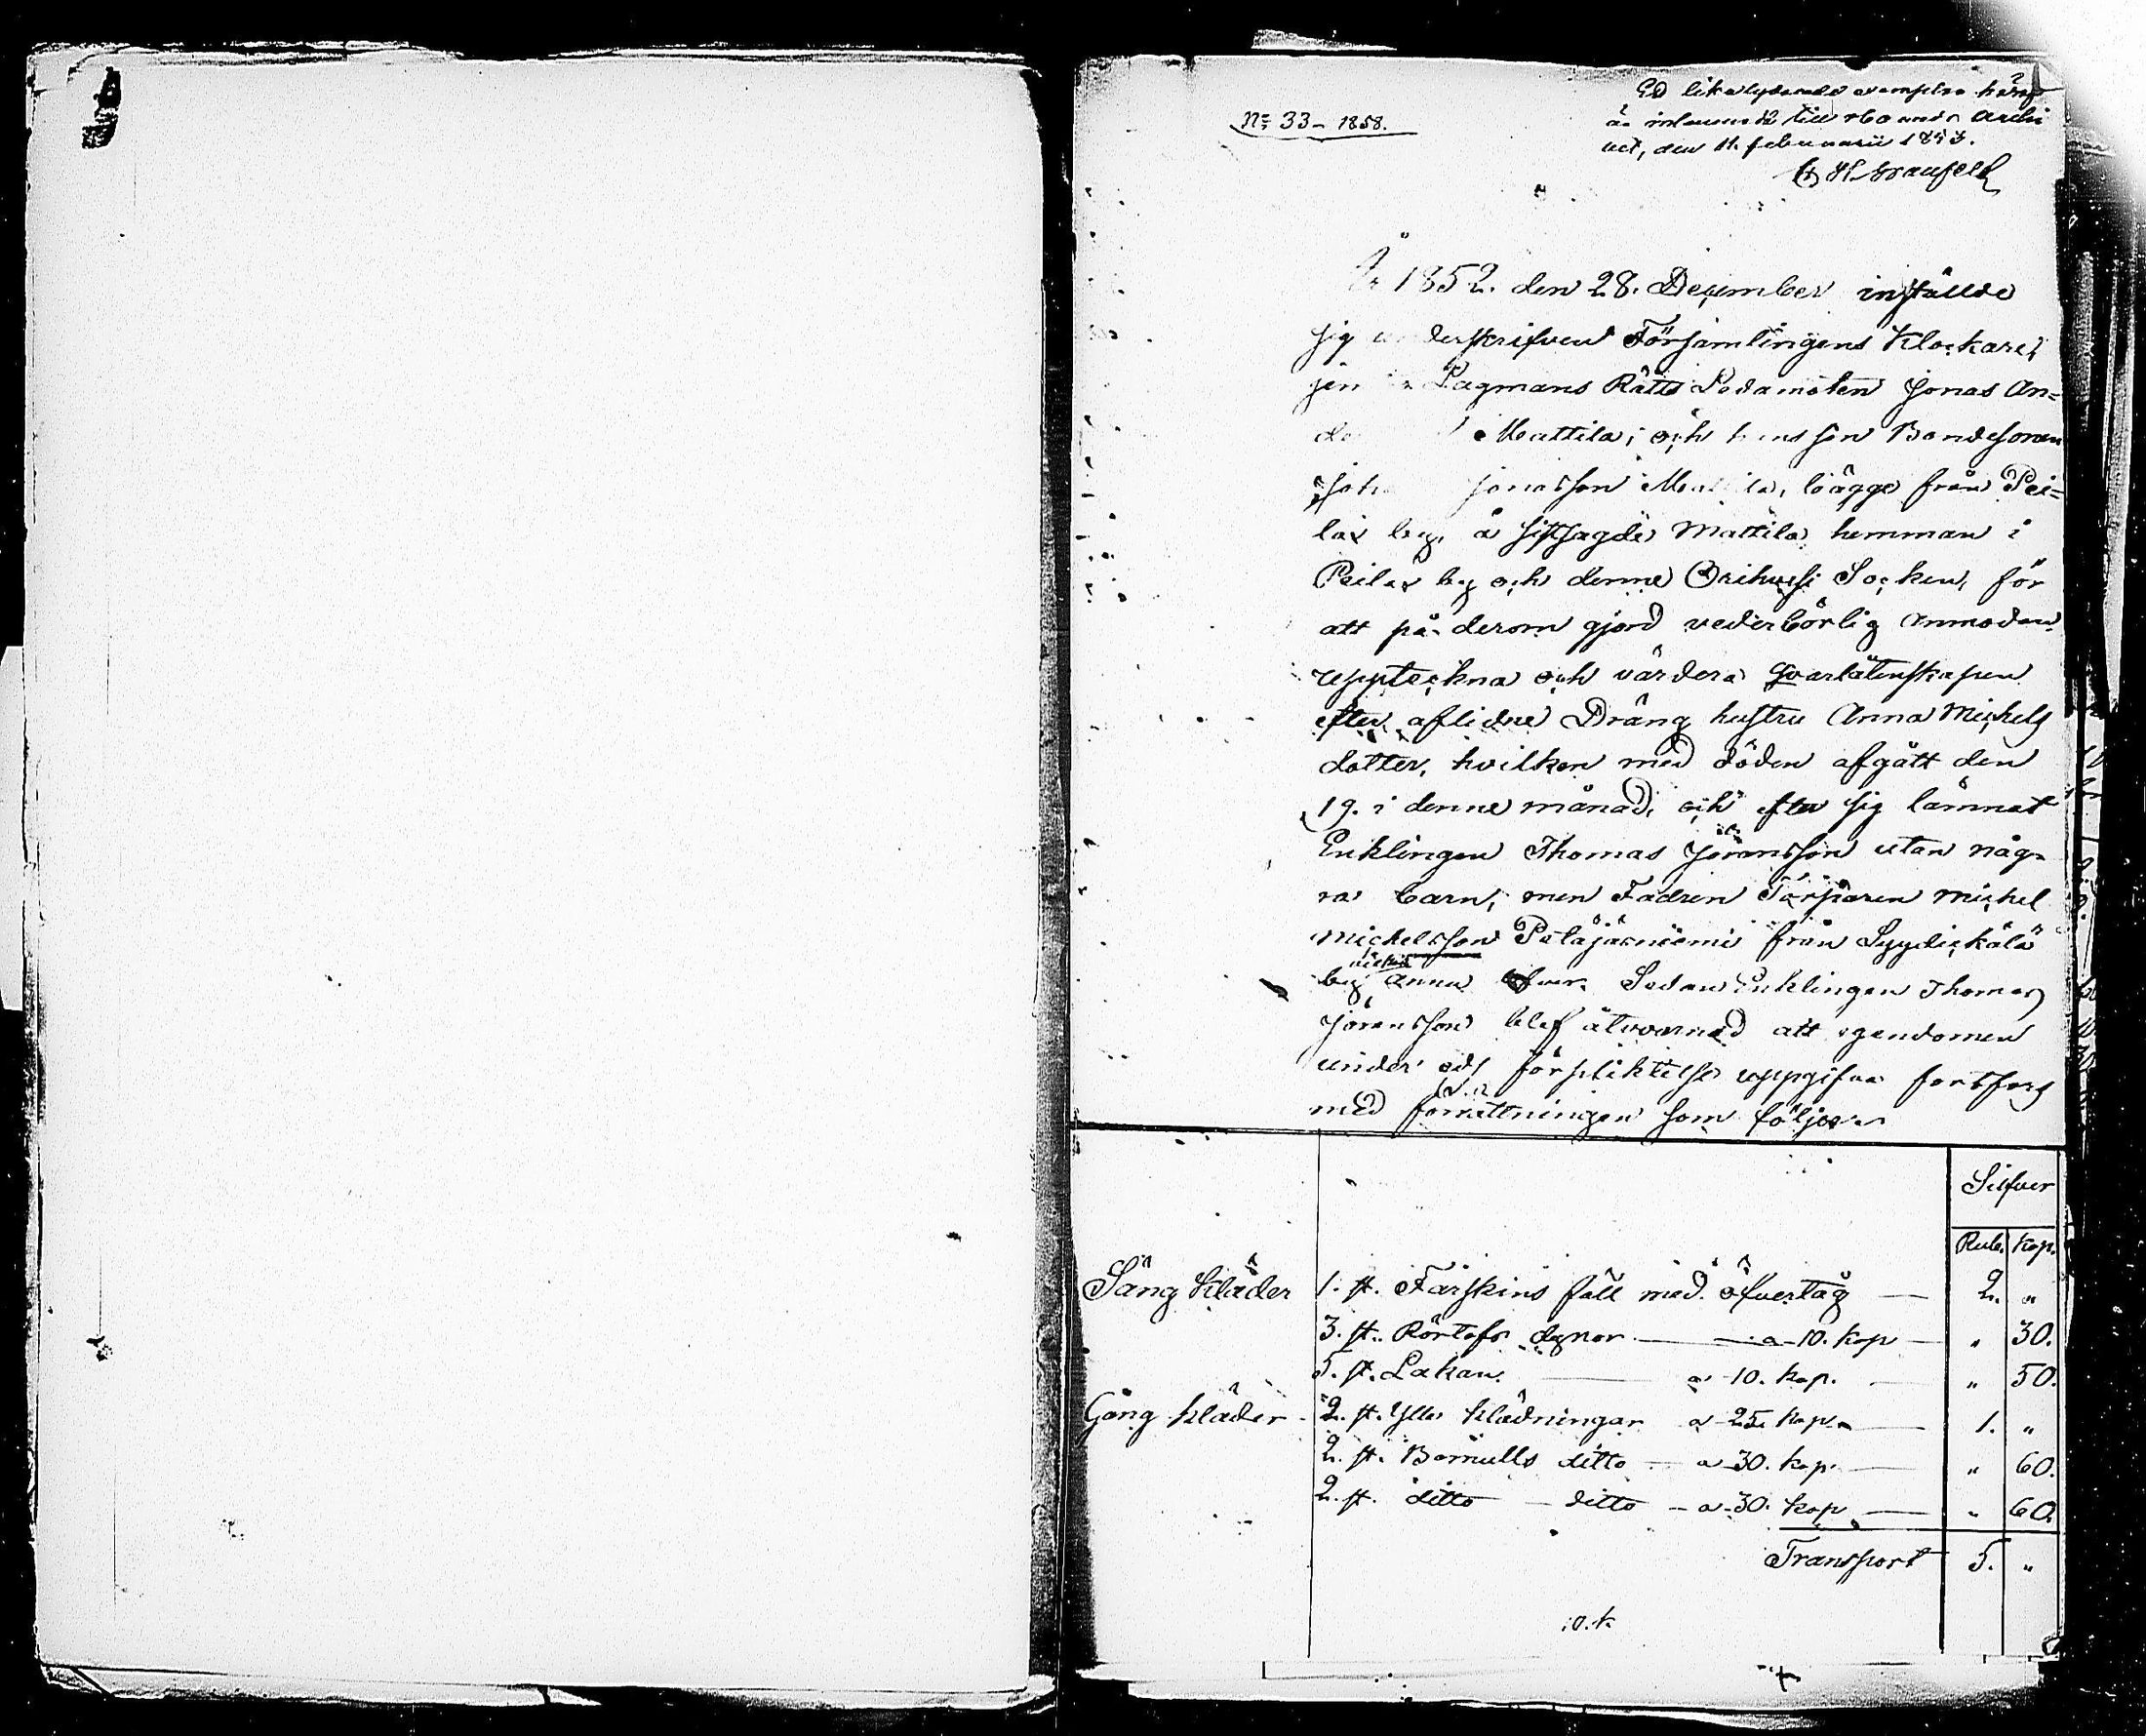 Nº 33 - 1858.
Ed likalydande exemplar häraf
är inlemnadt till Härads Archi
vet, den 11. februarii 1853.
År 1852. den 28. December instälde
sig underskrifven Församlingens Klockare,
Lagmans Rätts Ledamoten Jonas An=
Mattila, och hans son Bondesonen
Joh Jonasson Mattila, bägge från Pei=
lax by, å sistsagde Mattila hemman i
Peilax by och denne Orihvesi Socken, för
att på derom gjord vederbörlig anmodan
uppteckna och värdera qvarlåtenskapen
efter aflidne Dräng hustru Anna Michels
dotter, hvilken med döden afgått den
19. i denne månad, och efter sig lämnat
Enklingen Thomas Jöransson utan någ-
ra barn, men Fadren Torparen Michel
Michelsson Petäjäsniemi från Syydickälä
by ännu Sedan Enklingen Thomas
Jöransson blef åtvarnad att egendomen
under eds förpliktelse uppgifva fortforg
med förrättningen som följer
Silfver
Rub. Kop.
Säng kläder 1. st. Fårskins fäll med öfvertåg — 2. "
3. st. Rörtofs dynor — a 10. kop — " 30.
5. st. Lakan — a 10. kop. — " 50.
Gång kläder - 2. st. Ylle klädningar a 25. kop. — 1. "
2. st. Bomulls ditto — a 30. kop. — " 60.
2. st. ditto — ditto — a 30. kop — " 60.
Transport 5. "